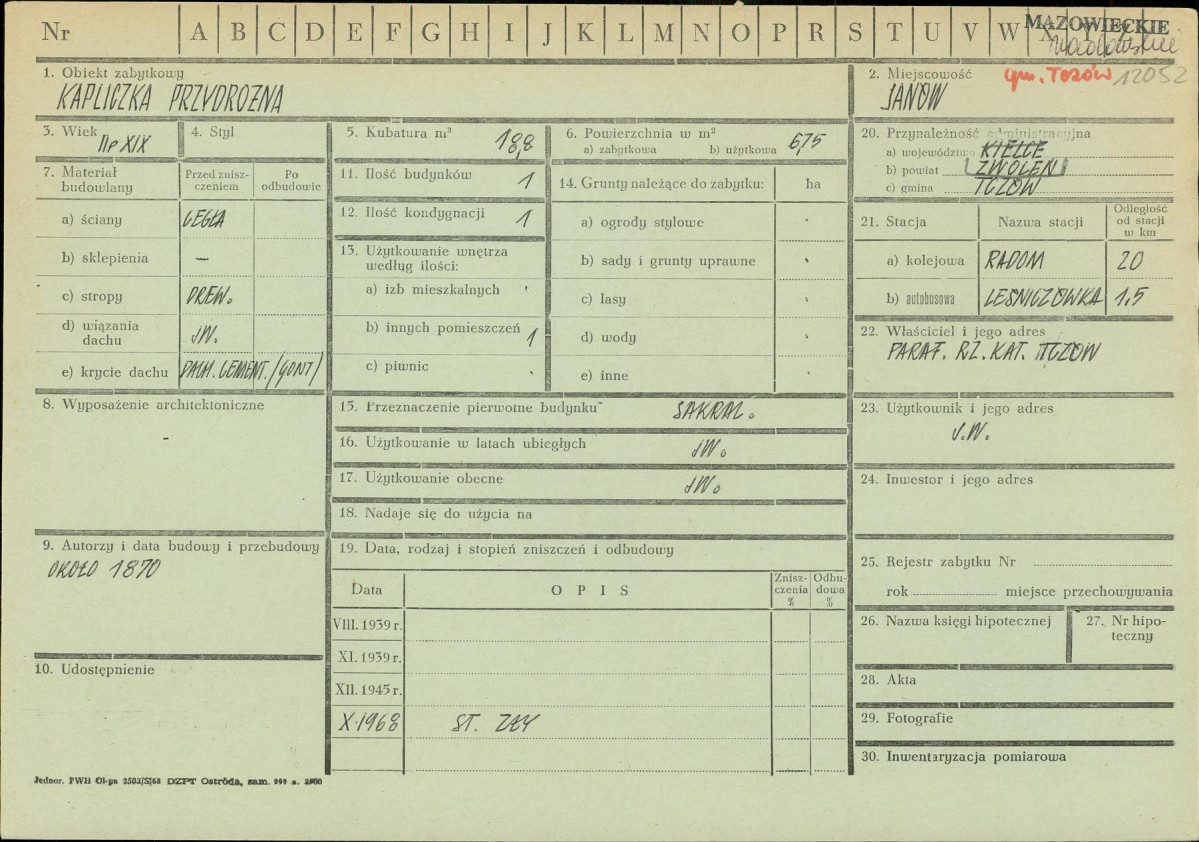 Nr A B C D E F G H I J K L M N O P R S T U V W X Y Z
MAZOWIECKIE
1. Obiekt zabytkowy
KAPLICZKA PRZYDROŻNA
2. Miejscowość gm. Tczów 12052
JANÓW
3. Wiek
XIX
4. Styl
5. Kubatura m³ 18,8
6. Powierzchnia w m²
a) zabytkowa b) użytkowa 6,75
20. Przynależność administracyjna
a) województwo KIELCE
b) powiat ZWOLEŃ
c) gmina TCZÓW
7. Materiał budowlany
Przed zniszczeniem
Po odbudowie
a) ściany CEGŁA
b) sklepienia —
c) stropy DREW.
d) wiązania dachu JW.
e) krycie dachu DACH. CEMENT. /GONT/
11. Ilość budynków 1
12. Ilość kondygnacji 1
13. Użytkowanie wnętrza według ilości:
a) izb mieszkalnych
b) innych pomieszczeń 1
c) piwnic
14. Grunty należące do zabytku: ha
a) ogrody stylowe
b) sady i grunty uprawne
c) lasy
d) wody
e) inne
21. Stacja Nazwa stacji Odległość od stacji w km
a) kolejowa RADOM 20
b) autobusowa LEŚNICZÓWKA 1,5
22. Właściciel i jego adres
PARAF. RZ. KAT. TCZÓW
8. Wyposażenie architektoniczne
-
15. Przeznaczenie pierwotne budynku SAKRAL.
16. Użytkowanie w latach ubiegłych JW.
17. Użytkowanie obecne JW.
18. Nadaje się do użycia na
23. Użytkownik i jego adres
J.W.
24. Inwestor i jego adres
9. Autorzy i data budowy i przebudowy
OKOŁO 1870
19. Data, rodzaj i stopień zniszczeń i odbudowy
Data OPIS Zniszczenia % Odbudowa %
VIII. 1939 r.
XI. 1939 r.
XII. 1945 r.
X.1968 ST. ZŁY
25. Rejestr zabytku Nr
rok miejsce przechowywania
26. Nazwa księgi hipotecznej
27. Nr hipoteczny
10. Udostępnienie
28. Akta
29. Fotografie
30. Inwentaryzacja pomiarowa
Jednor. PWH Ol-yn 2503/S/68 DZPT Ostróda, zam. 999 n. 2500